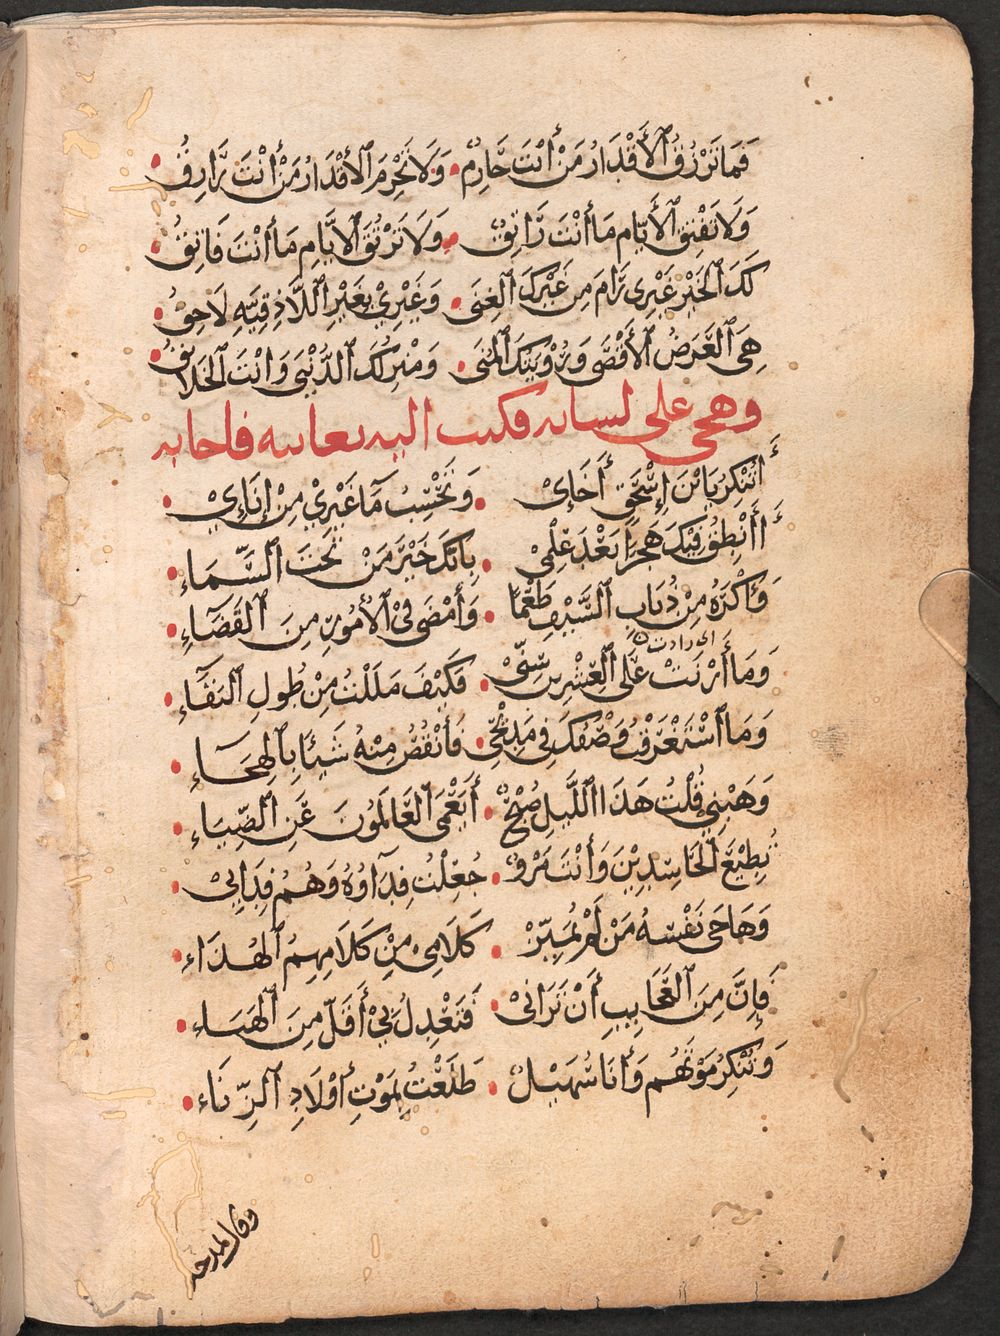 فَمَا تَرْزُقُ ٱلْأَقْدَارُ مَنْ أَنْتَ حَارِمٌ • وَلَا تَحْرِمُ ٱلْأَقْدَارُ مَنْ أَنْتَ رَازِقُ •
وَلَا تَفْتِقُ ٱلْأَيَّامُ مَا أَنْتَ رَاتِقٌ • وَلَا تَرْتُقُ ٱلْأَيَّامُ مَا أَنْتَ فَاتِقُ •
لَكَ ٱلْخَيْرُ غَيْرِى رَامَ مِنْ غَيْرِكَ ٱلْغِنَى • وَغَيْرِيْ بِغَيْرِ ٱللَّاذِقِيَّةِ لَاحِقُ •
هِيَ ٱلْغَرَضُ ٱلْأَقْصَى وَرُؤْيَتُكَ ٱلْمُنَى • وَمَنْزِلُكَ ٱلدُّنْيَى وَأَنْتَ ٱلْخَلَائِقُ •
وهجى على لسانه فكتب اليه يعاتبه فاجابه
أَتُنْكِرُ يَا بْنَ إِسْحٰقٍ أَخَاىِٔ • وَتَحْسِبُ مَآءَ غَيْرِيْ مِنْ إِنَاىِٔيْ •
أَأَنْطِقُ فِيكَ هَجْرًا بَعْدَ عِلْمِيْ • بِأَنَّكَ خَيْرُ مَنْ تَحْتَ ٱلسَّمَاءِ •
وَأَكْرَهُ مِنْ ذُبَابِ ٱلسَّيْفِ طَعْمًا • وَأَمْضَى فِيْ ٱلْأُمُورِ مِنَ ٱلْقَضَآءِ •
اى زادت
وَمَا أَرْبَتْ عَلَى ٱلْعِشْرِينَ سِنِّيْ • فَكَيْفَ مَلَلْتُ مِنْ طُولِ ٱلْبَقَآءِ •
وَمَا ٱسْتَغْرَقْتُ وَصْفَكَ فِي مَدِيْحِيْ • فَأَنْقُصَ مِنْهُ شَيْئًا بِٱلْهِجَآءِ •
وَهَبْنِي قُلْتُ هَذَا ٱللَّيْلُ صُبْحٌ • أَيَعْمَى ٱلْعَالَمُونَ عَنِ ٱلضِّيَاءِ •
تُطِيْعُ ٱلْحَاسِدِيْنَ وَأَنْتَ مَرْءٌ • جُعِلْتُ فِدَآؤُهُ وَهُمُ فِدَائِيْ •
وَهَاجَى نَفْسَهُ مَنْ لَمْ يُمَيِّزْ • كَلَامِيْ مِنْ كَلَامِهِمُ ٱلْهُذَاءِ •
فَإِنَّ مِنَ ٱلْعَجَائِبِ أَنْ تَرَانِيْ • فَتَعْدِلَ بِيْ أَقَلَّ مِنَ ٱلْهَبَاءِ •
وَتُنْكِرَ مَوْتَهُمْ وَأَنَا سُهَيْلٌ • طَلَعْتُ بِمَوْتِ أَوْلَادِ ٱلزِّنَاءِ •
وقال يمدحه